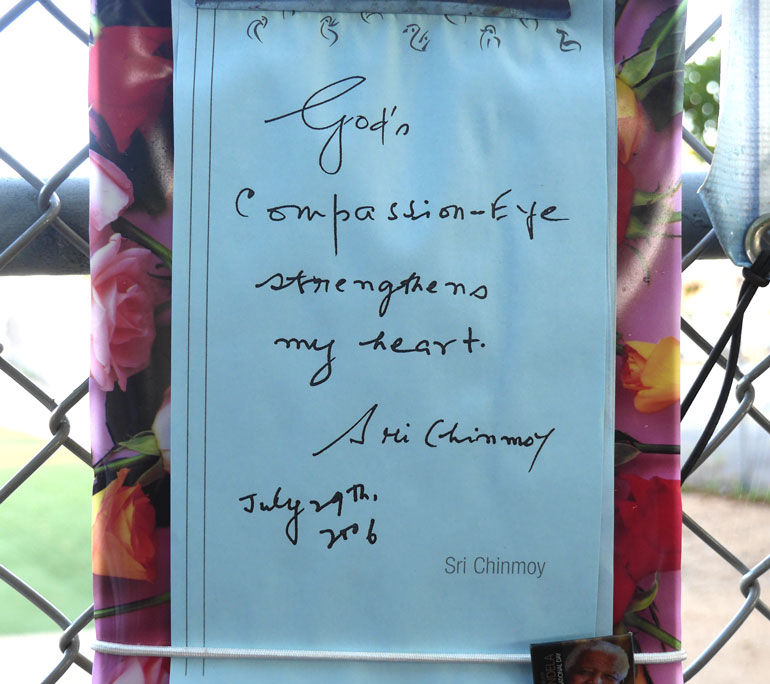 God's
Compassion-Eye
strengthens
my heart.
Sri Chinmoy
July 29th.
2006
Sri Chinmoy